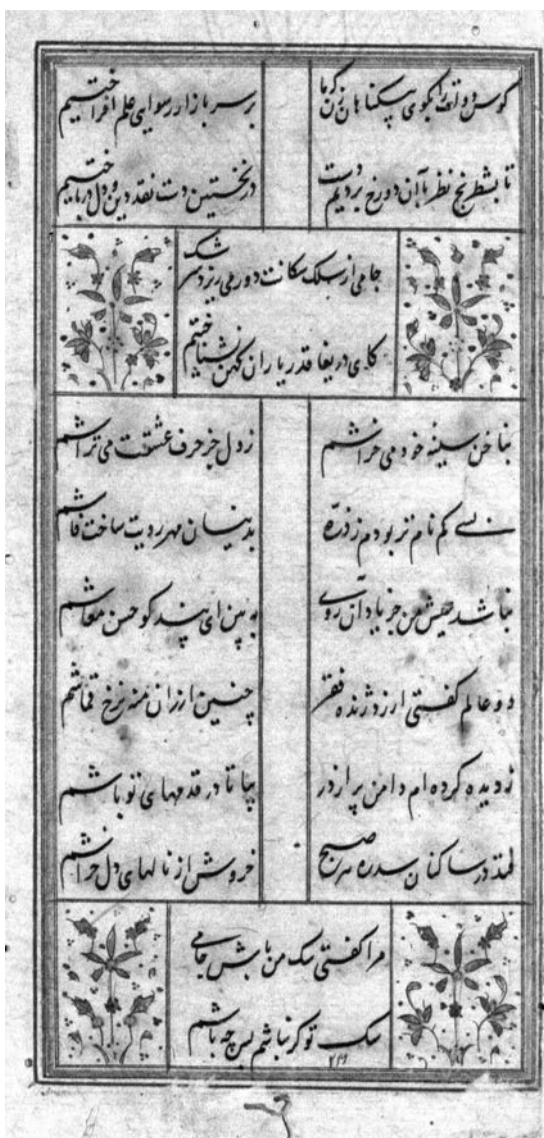 کوس دولت را بکوی نیکنامان زن که ما بر سر بازار رسوایی علم افراختیم
تا بشطرنج نظر با آن دو رخ بردیم دست در نخستین دست نقد دین و دل درباختیم
جامی از سلک سکانت دور می ریزد سرشک
کای دریغا قدر یاران کهن نشناختیم
بناخن سینه خود می خراشم ز دل جز حرف عشقت می تراشم
بسی کم نام تر بودم ز ذره بدینسان مهر رویت ساخت فاشم
نباشد عیش من جز یاد آن روی ببین ای پندکو حسن معاشم
دو عالم کفتی ارزد ژنده فقر چنین ارزان منه نرخ قماشم
ز دیده کرده ام دامن پر از در بیا تا در قدمهای تو پاشم
فتد در ساکنان سدره هر صبح خروش از نالهای دل خراشم
مرا کفتی سک من باش جامی
سک تو کر نباشم پس چه باشم